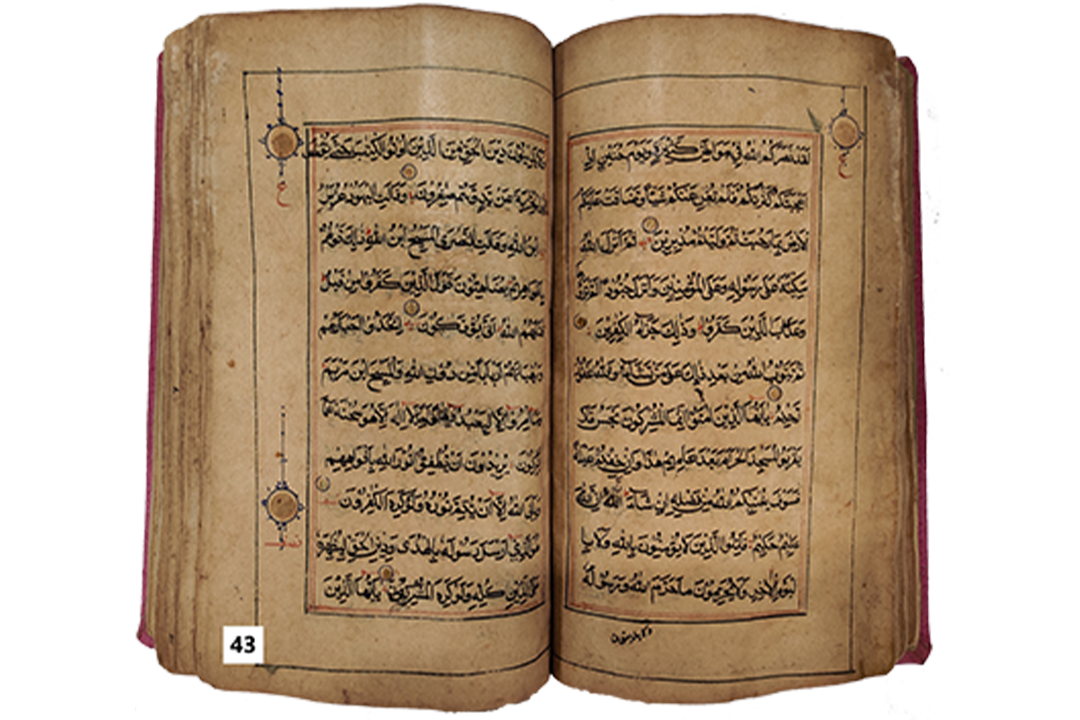 لقد نصركم الله في مواطن كثيرة ويوم حنين اذ
اعجبتكم كثرتكم فلم تغن عنكم شيئا وضاقت عليكم
الارض بما رحبت ثم وليتم مدبرين ثم انزل الله
سكينته على رسوله وعلى المؤمنين وانزل جنودا لم تروها
وعذب الذين كفروا وذلك جزاء الكفرين
ثم يتوب الله من بعد ذلك على من يشاء والله غفور
رحيم يايها الذين امنوا انما المشركون نجس فلا
يقربوا المسجد الحرام بعد عامهم هذا وان خفتم عيلة
فسوف يغنيكم الله من فضله ان شاء ان الله
عليم حكيم قاتلوا الذين لا يؤمنون بالله ولا با
ليوم الاخر ولا يحرمون ما حرم الله ورسوله
ولا يدينون
ولا يدينون دين الحق من الذين اوتوا الكتب حتى يعطوا
الجزية عن يد وهم صغرون وقالت اليهود عزير
ابن الله وقالت النصرى المسيح ابن الله ذلك قولهم
بافواههم يضاهئون قول الذين كفروا من قبل
قاتلهم الله انى يؤفكون اتخذوا احبارهم
ورهبانهم اربابا من دون الله والمسيح ابن مريم
وما امروا الا ليعبدوا الها واحدا لا اله الا هو سبحنه عما
يشركون يريدون ان يطفؤا نور الله بافواههم
ويابى الله الا ان يتم نوره ولو كره الكفرون
هو الذي ارسل رسوله بالهدى ودين الحق ليظهره
على الدين كله ولو كره المشركون يايها الذين
ع
ع
43